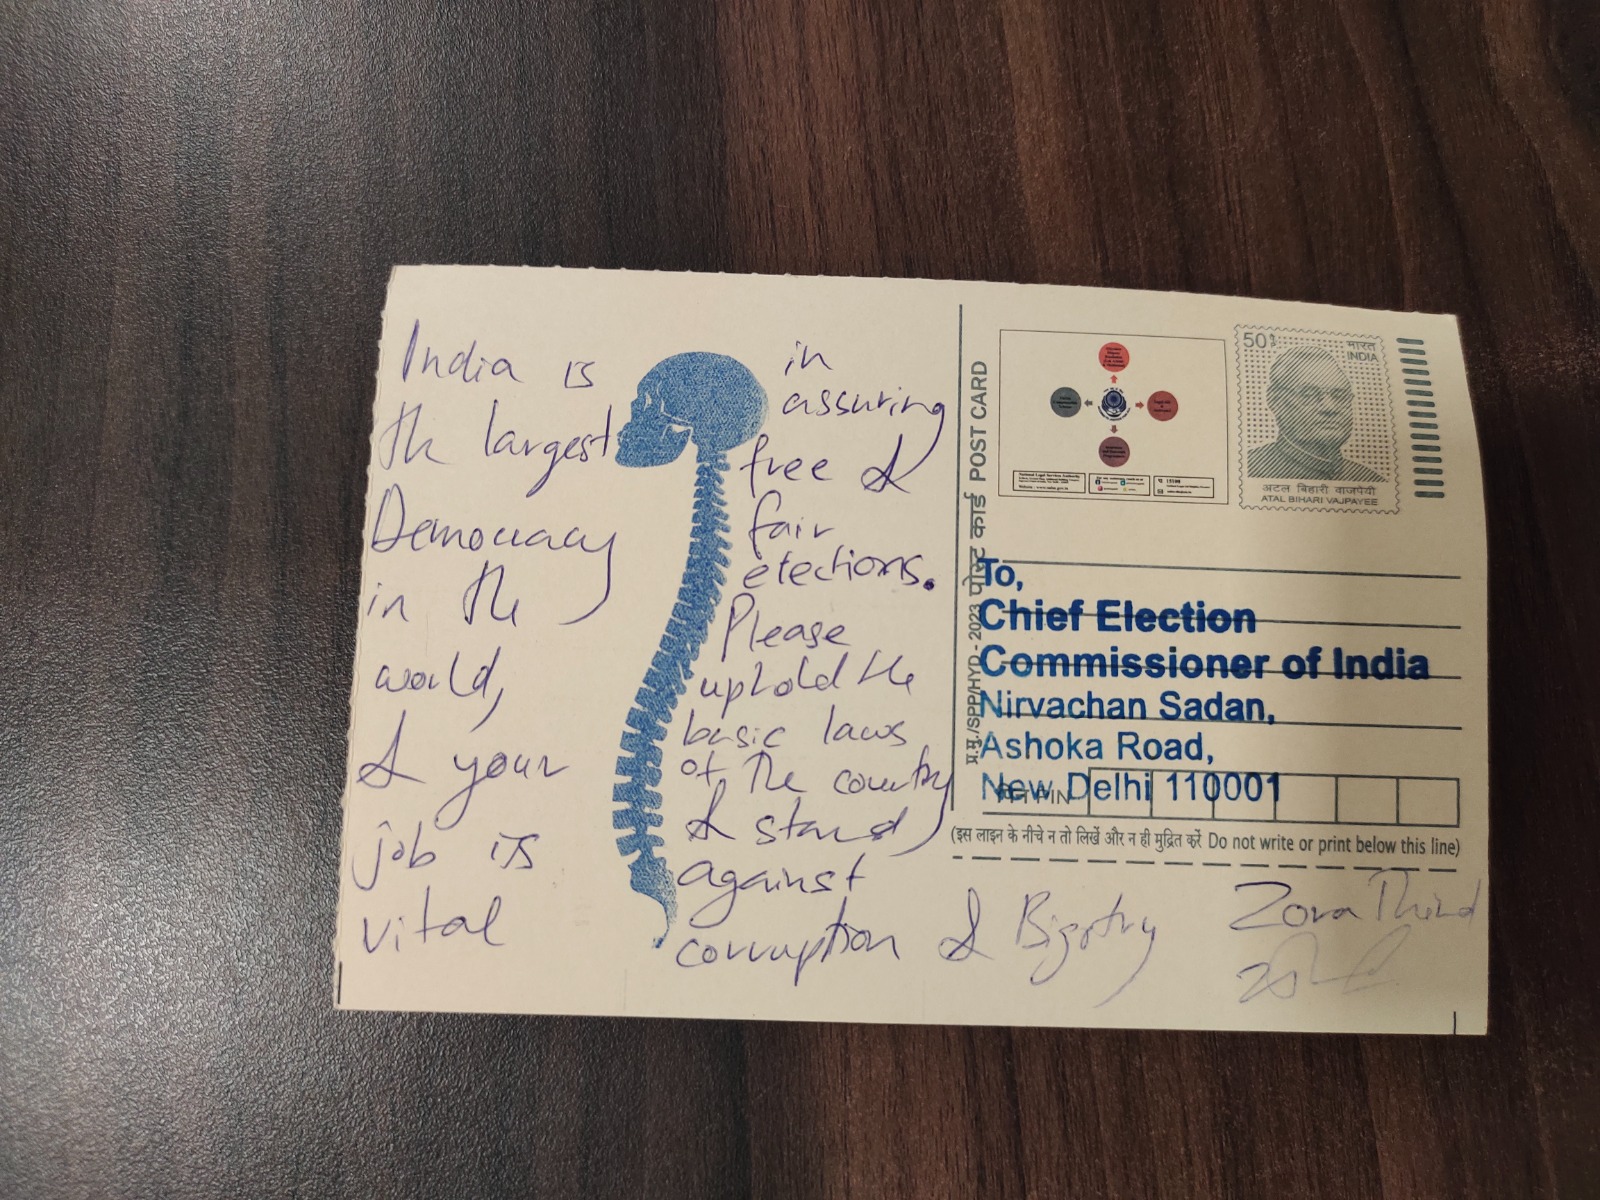 India is
the largest
Democracy
in the
world,
& your
job is
vital
in
assuring
free &
fair
elections.
Please
uphold the
basic laws
of the country
& stand
against
corruption & Bigotry
Zora Third
प्र.मु./SPP/HYD - 2023 पोस्ट कार्ड POST CARD
National Legal Services Authority
15100
50
भारत
INDIA
अटल बिहारी वाजपेयी
ATAL BIHARI VAJPAYEE
To,
Chief Election
Commissioner of India
Nirvachan Sadan,
Ashoka Road,
New Delhi 110001
PIN
(इस लाइन के नीचे न तो लिखें और न ही मुद्रित करें Do not write or print below this line)